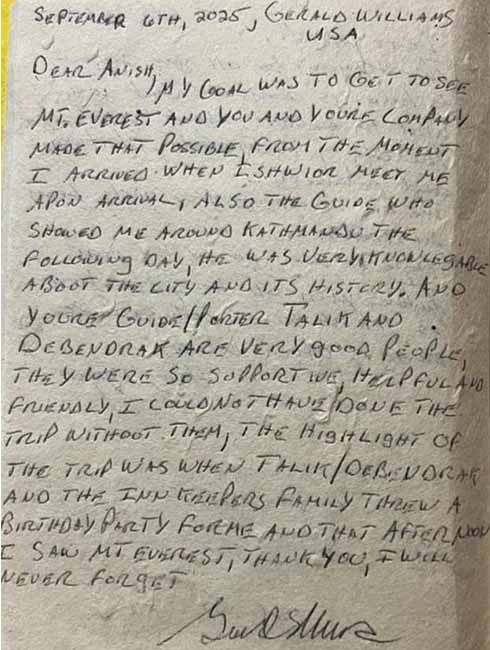 SEPTEMBER 6TH, 2025, GERALD WILLIAMS
USA
DEAR ANISH, MY GOAL WAS TO GET TO SEE
MT. EVEREST AND YOU AND YOURE COMPANY
MADE THAT POSSIBLE, FROM THE MOMENT
I ARRIVED WHEN ISHWIOR MEET ME
APON ARRIVAL, ALSO THE GUIDE WHO
SHOWED ME AROUND KATHMANDU THE
FOLLOWING DAY, HE WAS VERY KNOWLEGABLE
ABOUT THE CITY AND ITS HISTORY. AND
YOURE GUIDE/PORTER TALIK AND
DEBENDRAK ARE VERY GOOD PEOPLE,
THEY WERE SO SUPPORTIVE, HELPFUL AND
FRIENDLY, I COULD NOT HAVE DONE THE
TRIP WITHOUT THEM, THE HIGHLIGHT OF
THE TRIP WAS WHEN TALIK/DEBENDRAK
AND THE INN KEEPERS FAMILY THREW A
BIRTHDAY PARTY FOR ME AND THAT AFTERNOON
I SAW MT EVEREST, THANK YOU, I WILL
NEVER FORGET